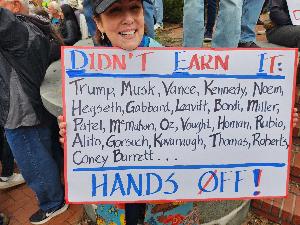 DIDN'T EARN IT:
Trump, Musk, Vance, Kennedy, Noem,
Hegseth, Gabbard, Leavitt, Bondi, Miller,
Patel, McMahon, Oz, Vought, Homan, Rubio,
Alito, Gorsuch, Kavanaugh, Thomas, Roberts,
Coney Barrett . . .
HANDS OFF!